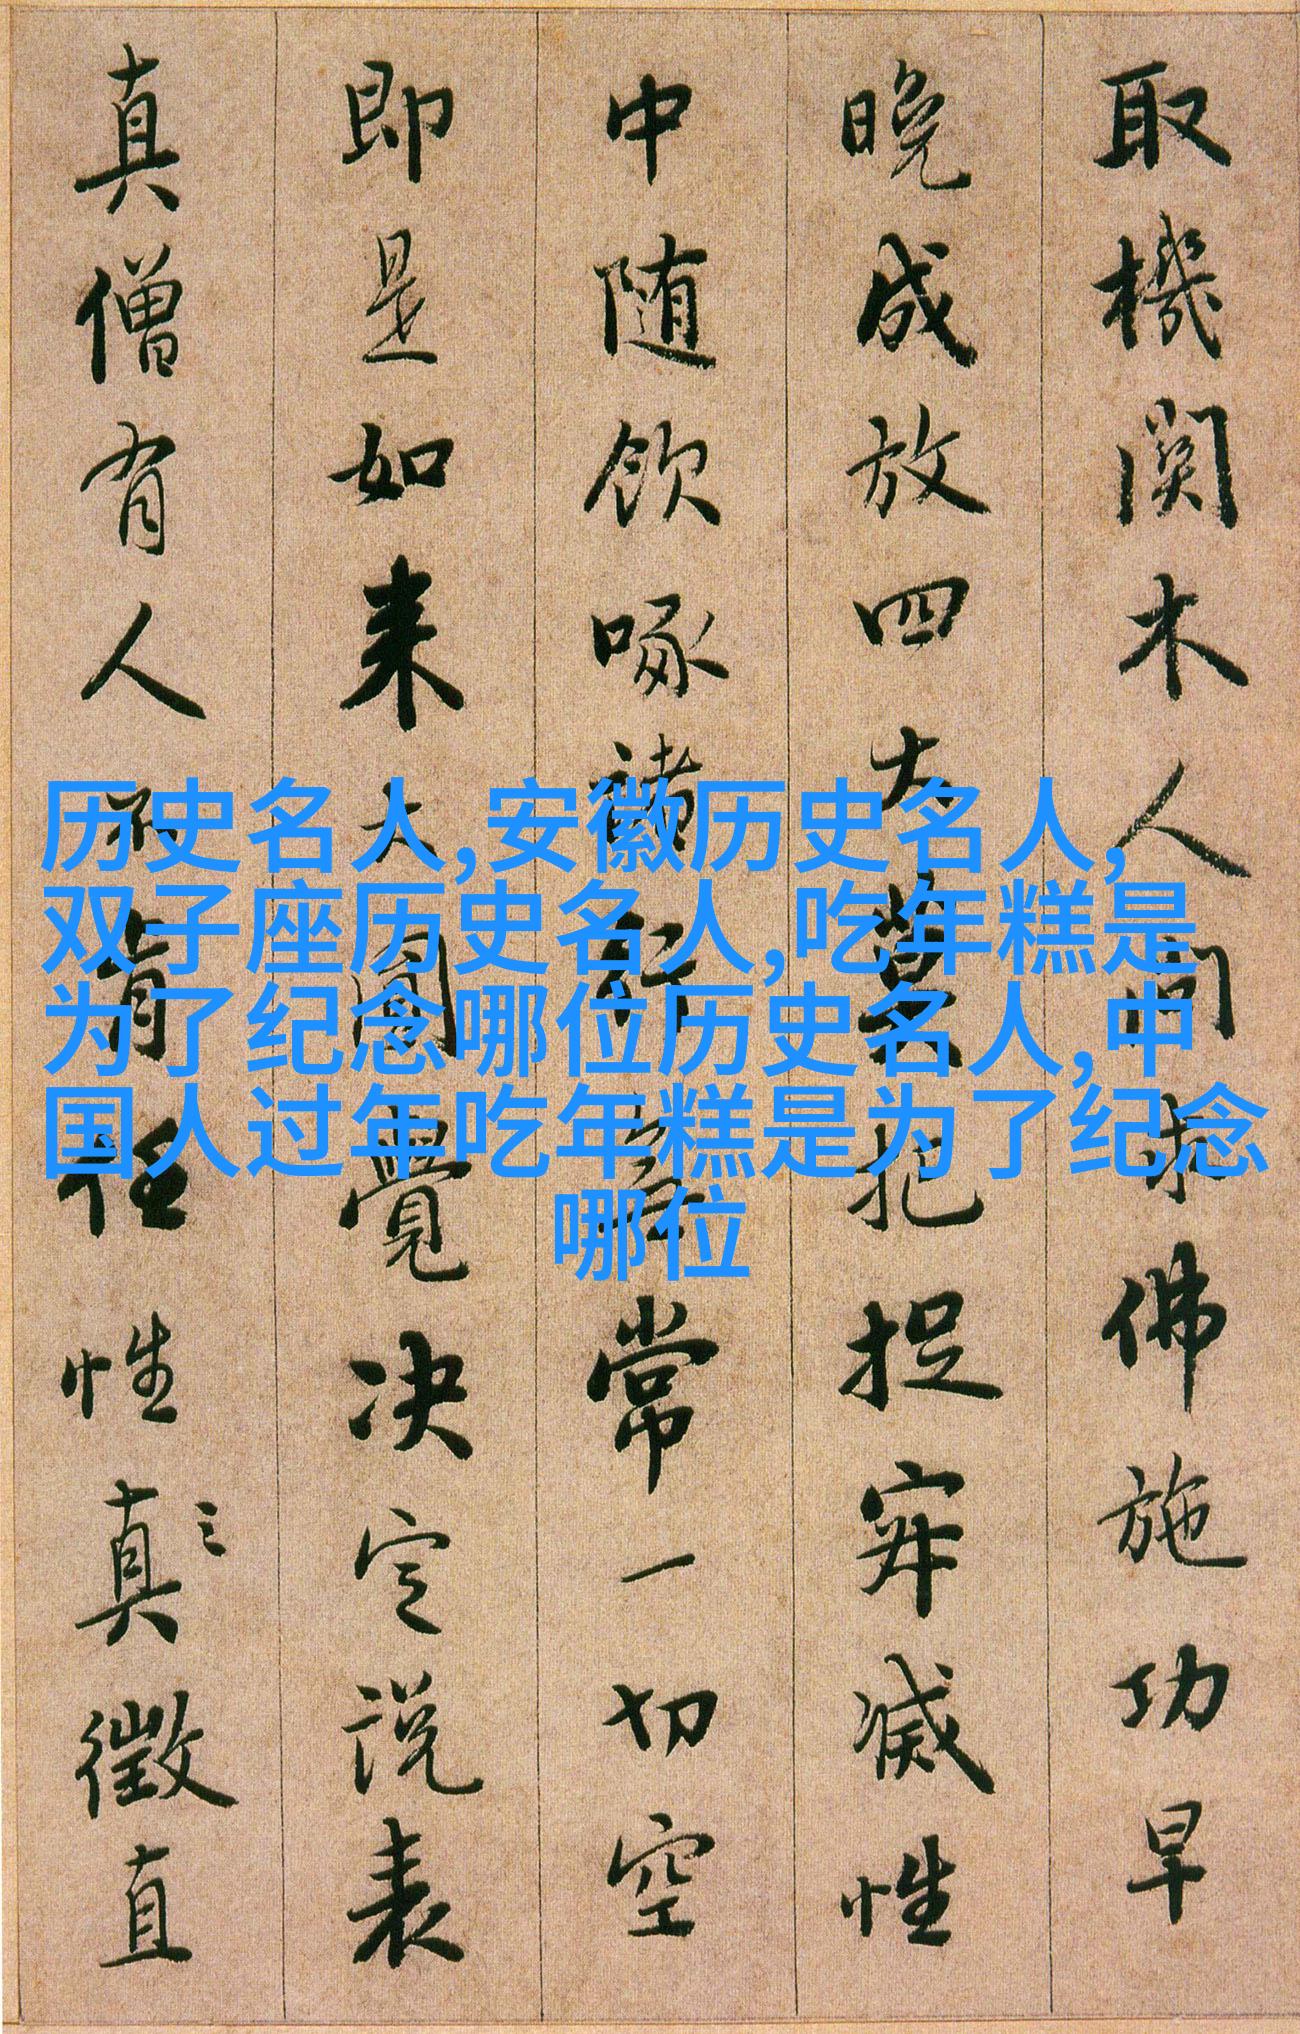 取機関木人問求佛施功早
晚成放四大莫把捉寂滅性
中随飲啄諸行無常一切空
即是如来大圓覺决定説表
真僧有人不肯任性真徵直
历史名人,安徽历史名人,
双子座历史名人,吃年糕是
为了纪念哪位历史名人,中
国人过年吃年糕是为了纪念
哪位